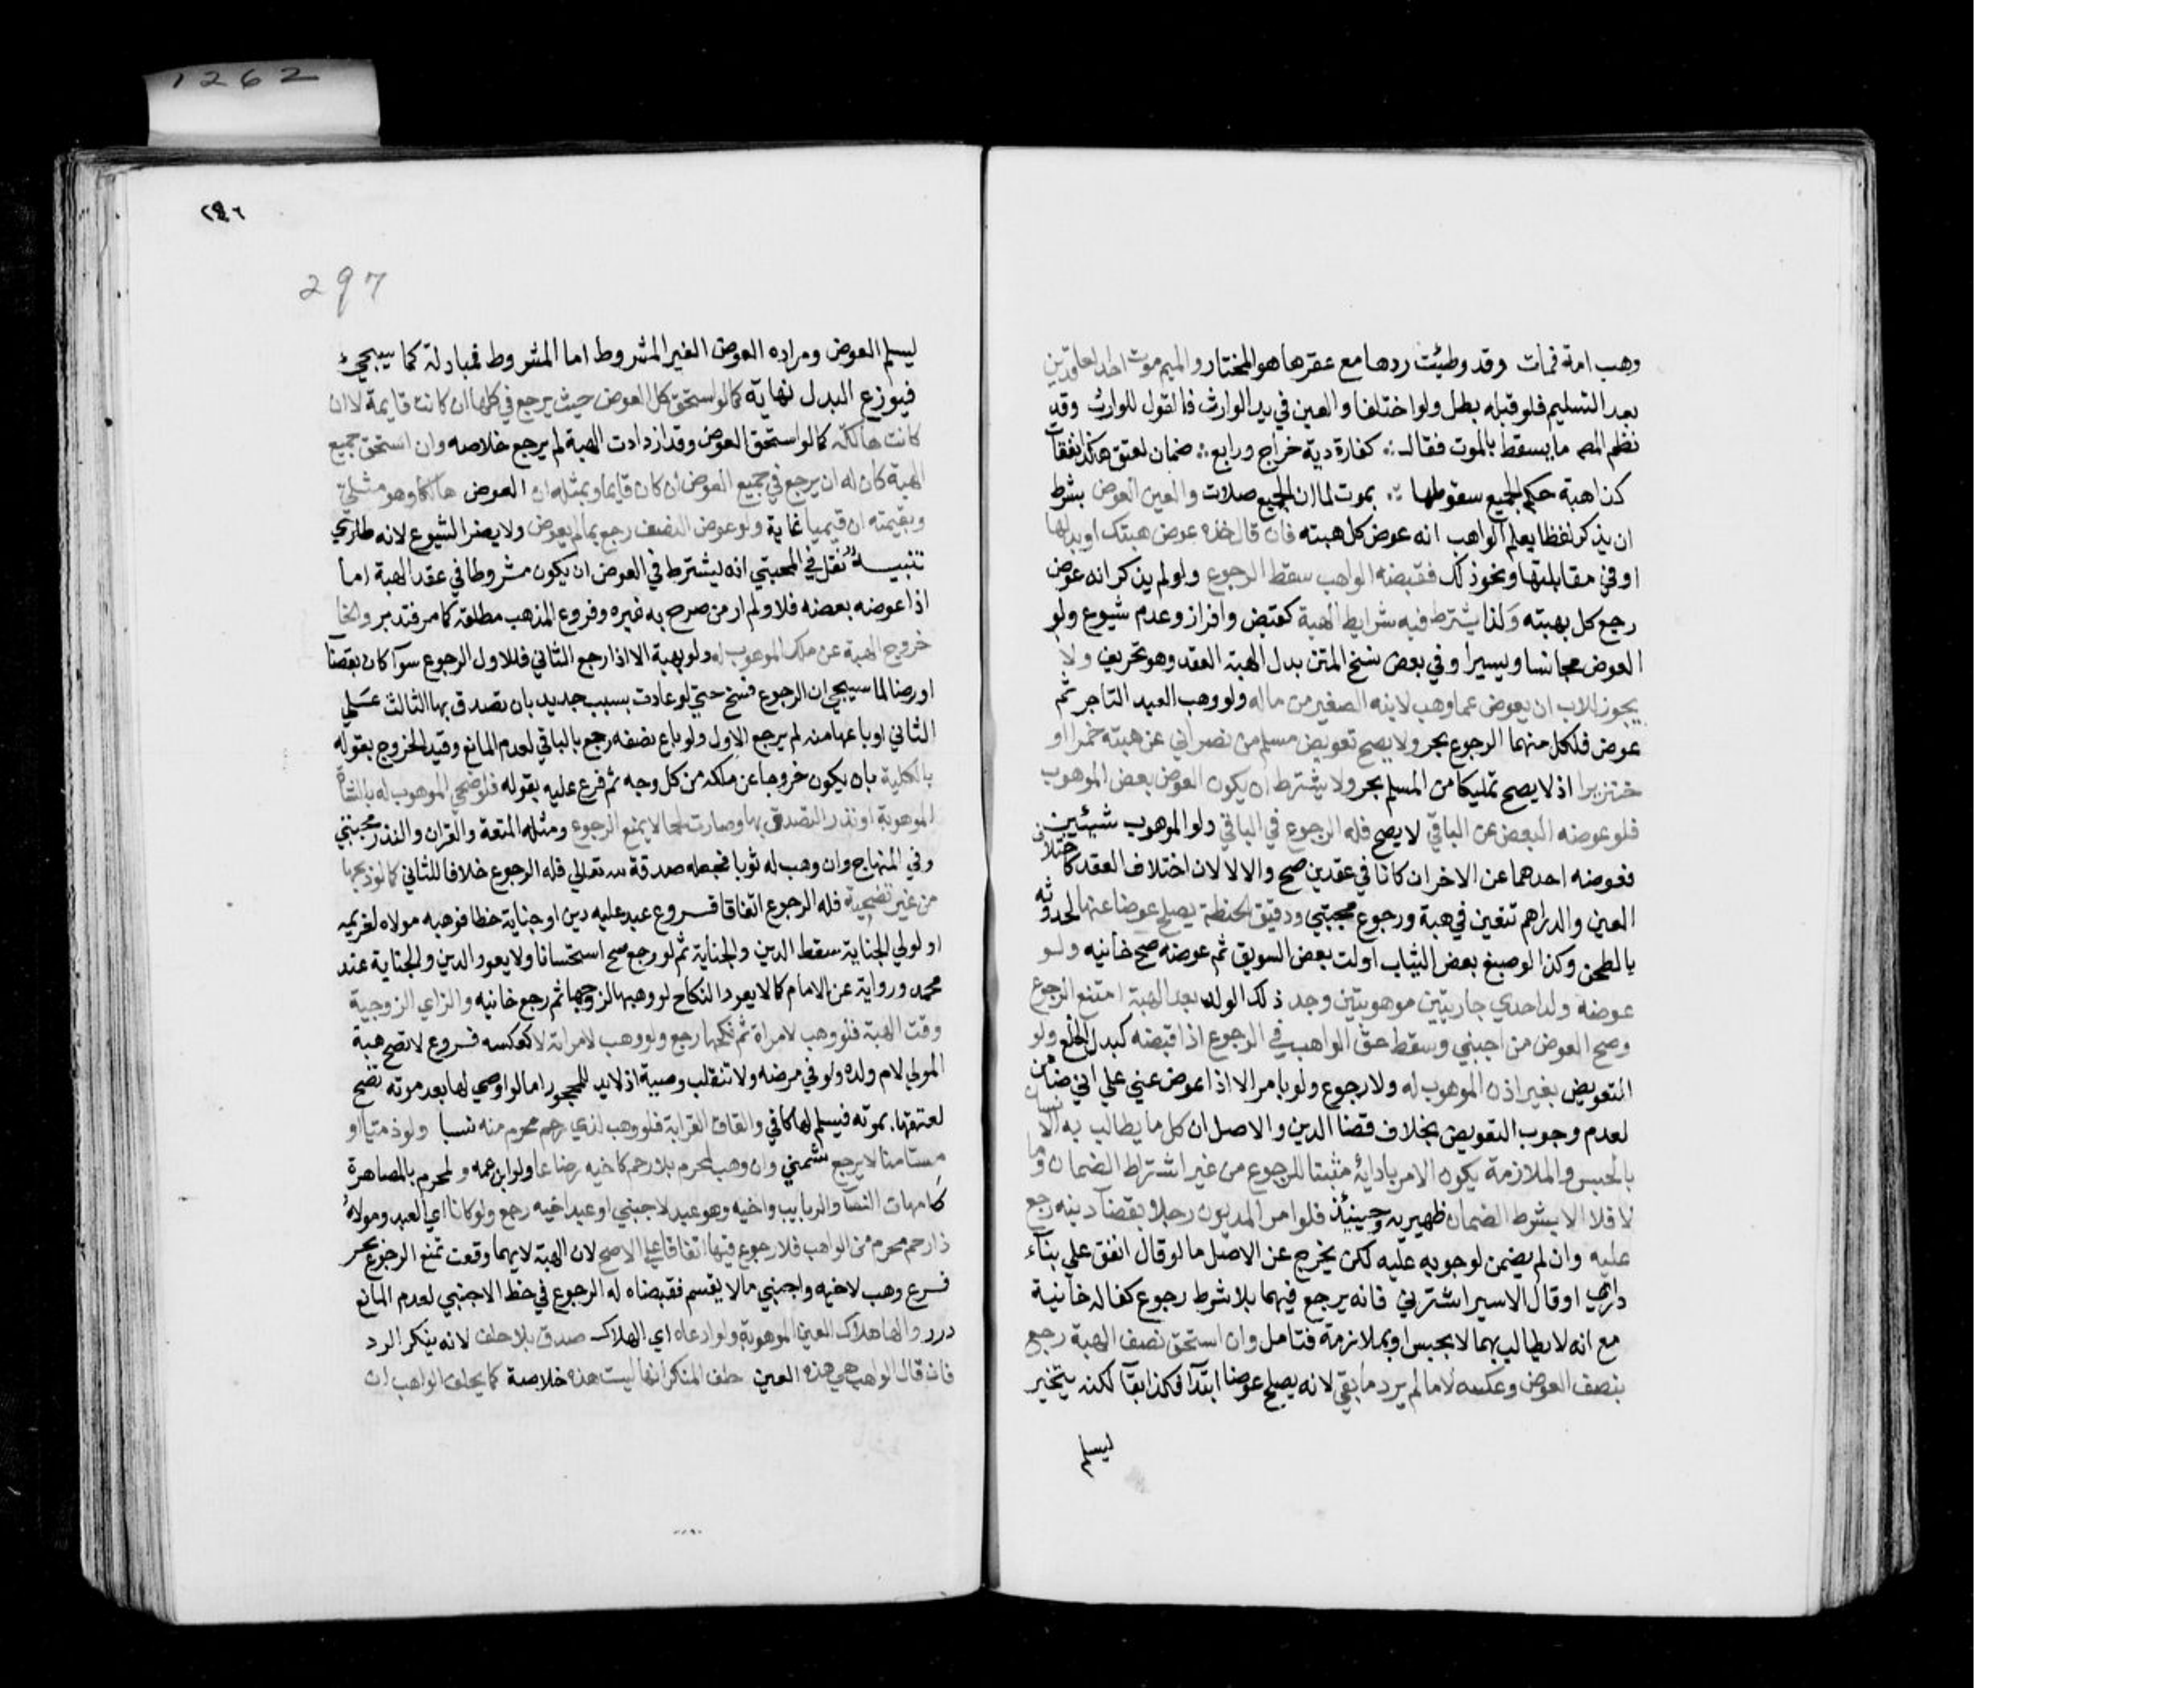 وهب امة فمات وقد وطئت ردها مع عقرها هو المختار والميم موت احد العاقدين
بعد التسليم فلو قبله بطل ولو اختلفا والعين في يد الوارث فالقول للوارث وقد
نظم المصـ ما يسقط بالموت فقال ∴ كفارة دية خراج ورابع ∴ ضمان لعتق هكذا نفقات
كذا هبة حكم الجميع سقوطها ∴ بموت لما ان الجميع صلات والعين العوض بشرط
ان يذكر لفظا يعلم الواهب انه عوض كل هبته فان قال خذه عوض هبتك او بدلها
او في مقابلتها ونحو ذلك فقبضه الواهب سقط الرجوع ولو لم يذكر انه عوض
رجع كل بهبته ولذا يشترط فيه شرايط الهبة كقبض وافراز وعدم شيوع ولو
العوض مجانسا ويسيرا وفي بعض نسخ المتن بدل الهبة العقد وهو تحريف ولا
يجوز للاب ان يعوض عما وهب لابنه الصغير من ماله ولو وهب العبد التاجر ثم
عوض فلكل منهما الرجوع بحر ولا يصح تعويض مسلم من نصراني عن هبته خمرا او
خنزيرا اذ لا يصح تمليكا من المسلم بحر ولا يشترط ان يكون العوض بعض الموهوب
فلو عوضه البعض عن الباقي لا يصح فله الرجوع في الباقي ولو الموهوب شيئين
فعوضه احدهما عن الاخر ان كانا في عقدين صح والا لا لان اختلاف العقد كاختلاف
العين والدراهم تتعين في هبة ورجوع مجتبي ودقيق الحنطة يصلح عوضا عنها لحدوثه
بالطحن وكذا لو صبغ بعض الثياب او لت بعض السويق ثم عوضه صح خانيه ولو
عوضه ولد احدي جاريتين موهوبتين وجد ذلك الولد بعد الهبة امتنع الرجوع
وصح العوض من اجنبي وسقط حق الواهب في الرجوع اذا قبضه كبدل الخلع ولو
التعويض بغير اذن الموهوب له ولا رجوع ولو بامر الا اذا عوض عني علي اني ضامن
لعدم وجوب التعويض بخلاف قضا الدين والاصل ان كل ما يطالب به الانسان
بالحبس والملازمة يكون الامر بادائه مثبتا للرجوع من غير اشتراط الضمان وما
لا فلا الا بشرط الضمان ظهيريه وحينئذ فلو امر المديون رجلا بقضا دينه رجع
عليه وان لم يضمن لوجوبه عليه لكن يخرج عن الاصل ما لو قال انفق علي بناء
داري او قال الاسير اشترني فانه يرجع فيهما بلا شرط رجوع كفاله خانية
مع انه لا يطالب بهما لا بحبس او بملازمة فتامل وان استحق نصف الهبة رجع
بنصف العوض وعكسه لا ما لم يرد ما بقي لانه يصلح عوضا ابتدا فكذا بقآ لكنه يتخير
ليسلم
٢٩٦
297
1262
ليسلم العوض ومراده العوض الغير المشروط اما المشروط فمبادلة كما سيجيء
فيوزع البدل نهاية كما لو استحق كل العوض حيث يرجع في كلها ان كانت قايمة لا ان
كانت هالكة كما لو استحق العوض وقد ازدادت الهبة لم يرجع خلاصه وان استحق جميع
الهبة كان له ان يرجع في جميع العوض ان كان قايما وبمثله ان العوض هالكا وهو مثلي
وبقيمته ان قيميا غاية ولو عوض النصف رجع بما لم يعوض ولا يضر الشيوع لانه طاري
تنبيـه نقل في المجتبي انه يشترط في العوض ان يكون مشروطا في عقد الهبة اما
اذا عوضه بعضه فلا ولم ار من صرح به غيره وفروع المذهب مطلقة كما مر فتدبر والخا
خروج الهبة عن ملك الموهوب له ولو بهبة الا اذا رجع الثاني فللاول الرجوع سوآ كان بقضآ
او رضا لما سيجي ان الرجوع فسخ حتي لو عادت بسبب جديد بان تصدق بها الثالث علي
الثاني او باعها منه لم يرجع الاول ولو باع نصفه رجع بالباقي لعدم المانع وقيد الخروج بقوله
بالكلية بان يكون خروجا عن ملكه من كل وجه ثم فرع عليه بقوله فلو ضحي الموهوب له بالشاة
الموهوبة او نذر التصدق بها وصارت لحما لا يمنع الرجوع ومثله المتعة والقران والنذر مجتبي
وفي المنهاج وان وهب له ثوبا فجعله صدقة لله تعالي فله الرجوع خلافا للثاني كما لو ذبحها
من غير تضحية فله الرجوع اتفاقا فـروع عبد عليه دين او جناية خطا فوهبه مولاه لغريمه
او لولي الجناية سقط الدين والجناية ثم لو رجع صح استحسانا ولا يعود الدين والجناية عند
محمد ورواية عن الامام كما لا يعود النكاح لو وهبها لزوجها ثم رجع خانيه والزاي الزوجية
وقت الهبة فلو وهب لامراة ثم نكحها رجع ولو وهب لامراته لا كعكسه فـروع لا تصح هبة
المولي لام ولده ولو في مرضه ولا تنقلب وصية اذ لا يد للمحجور اما لو اوصي لها بعد موته تصح
لعتقها بموته فيسلم لها كافي والقاف القرابة فلو وهب لذي رحم محرم منه نسبا ولو ذميا او
مستامنا لا يرجع شمني وان وهب لمحرم بلا رحم كاخيه رضاعا ولو ابن عمه ولمحرم بالمصاهرة
كامهات النسآ والربايب واخيه وهو عبد لاجنبي او عبد اخيه رجع ولو كانا اي العبد ومولاه
ذا رحم محرم من الواهب فلا رجوع فيها اتفاقا علي الاصح لان الهبة لايهما وقعت تمنع الرجوع بحر
فـرع وهب لاخيه واجنبي ما لا يقسم فقبضاه له الرجوع في حظ الاجنبي لعدم المانع
درر والها هلاك العين الموهوبة ولو ادعاه اي الهلاك صدق بلا حلف لانه ينكر الرد
فان قال الواهب هي هذه العين حلف المنكر انها ليست هذه خلاصة كما يحلف الواهب ان